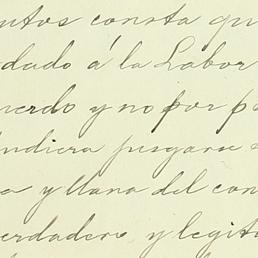 ntos consta qu
dado á la Labor
uerdo y no por p
udiera pesgara
a y llana del con
erdadera y legit